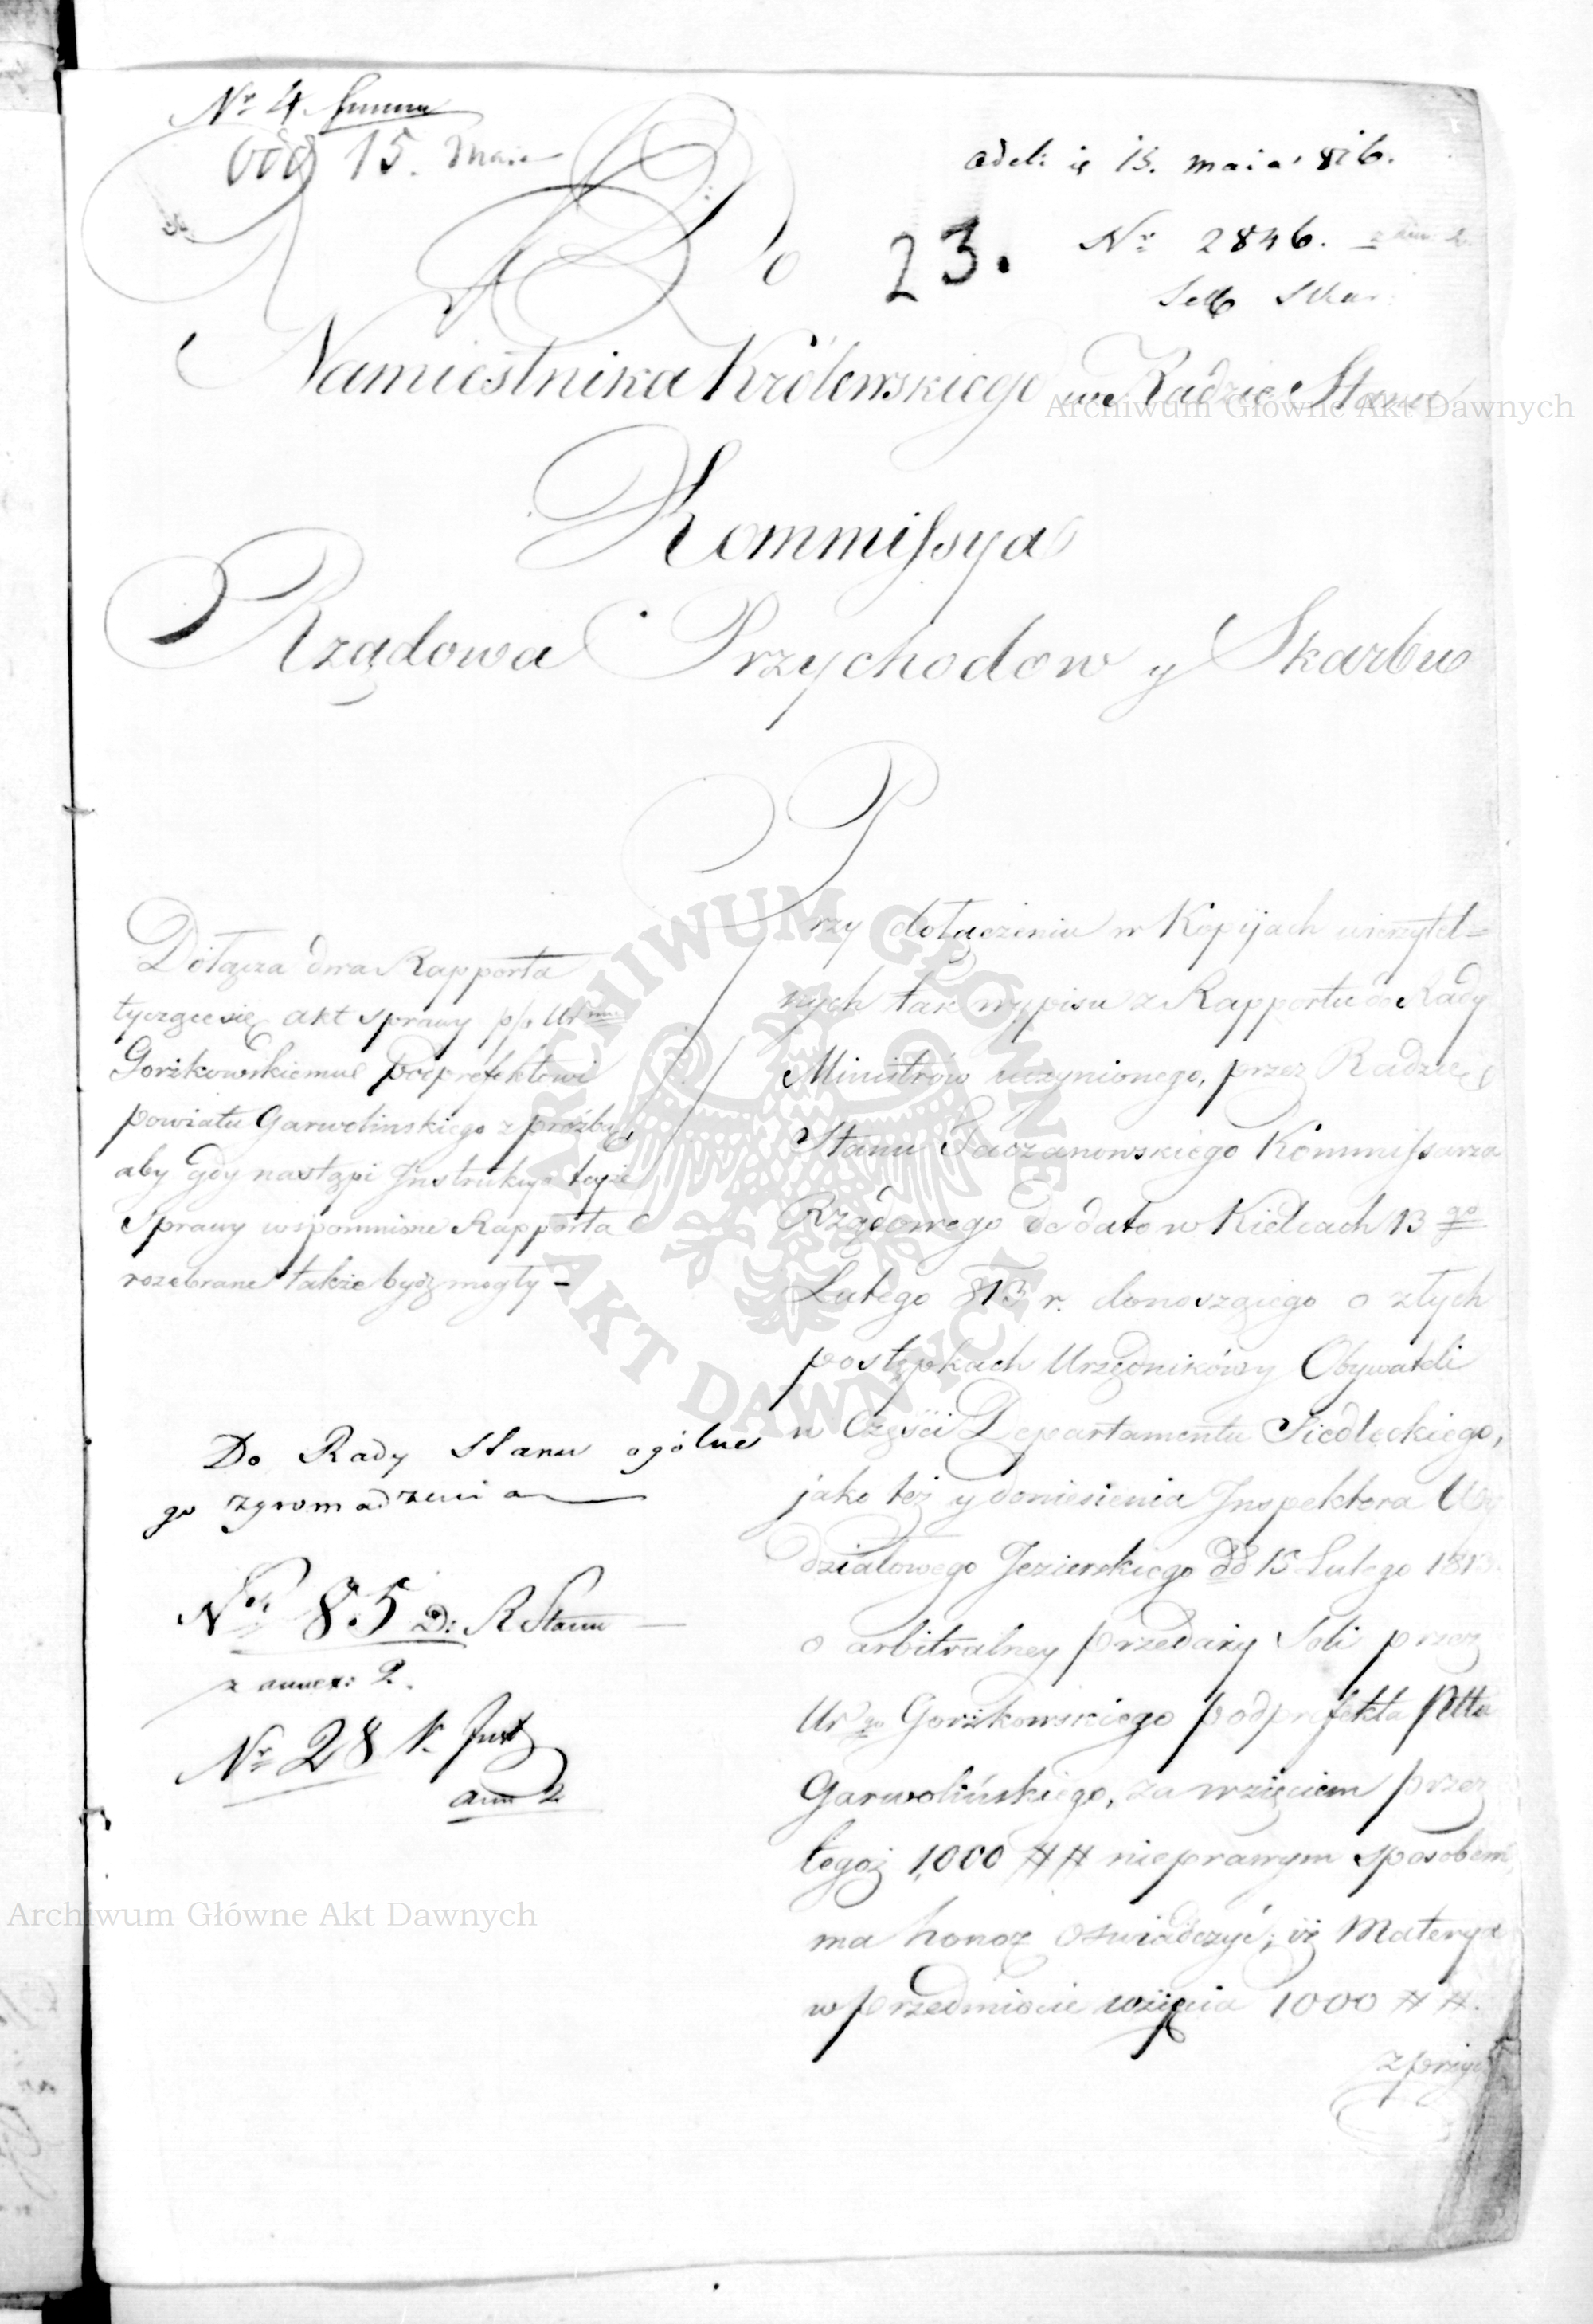 Nr 4.
15. Maia
odeb: 15. maia 816.
Do
23.
Nr 2846.
Sekr Skar:
Namiestnika Królewskiego w Radzie Stanu
Archiwum Główne Akt Dawnych
Kommissya
Rządowa Przychodow y Skarbu
Dołącza dwa Rapporta
tyczące się akt sprawy p/o Ur
Gorzkowskiemu podprefektowi
powiatu Garwolinskiego z prozbą
aby gdy nastąpi Instrukcya teyże
sprawy wspomnione Rapporta
rozebrane także bydz mogły -
Do Rady Stanu ogólne
go zgromadzenia
Nr 85 D: R Stanu
z annex: 2.
Nr 28
ann 2
Przy dołączeniu w Kopijach wierzytel=
nych tak wypisu z Rapportu do Rady
Ministrów uczynionego, przez Radzcę
Stanu Taczanowskiego Kommissarza
Rządowego de dato w Kielcach 13 go
Lutego 813 r. donoszącego o złych
postępkach Urzędników y Obywateli
w Części Departamentu Siedleckiego,
jako też y doniesienia Inspektora Wy
działowego Jezierskiego dd 15 Lutego 1813
o arbitralney przedaży Soli przez
Ur go Gorzkowskiego podprefekta Pttu
Garwolińskiego, za wzięciem przez
tegoż 1,000 ## nieprawym sposobem,
ma honor oswiadczyć, iż Materya
w przedmiocie wzięcia 1000 ##.
z przyc
ARCHIWUM GŁÓWNE
AKT DAWNYCH
Archiwum Główne Akt Dawnych